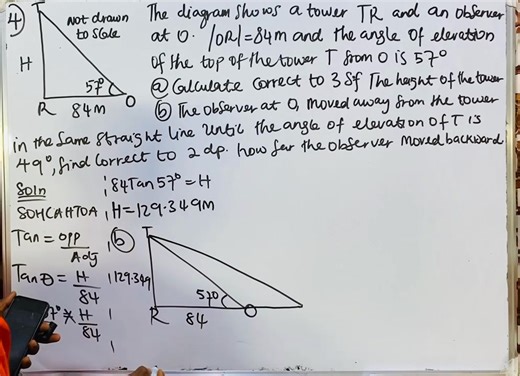 4
T
Not drawn
to Scale
H
57°
R 84m O
The diagram shows a tower TR and an observer
at O. |OR|=84m and the angle of elevation
of the top of the tower T from O is 57°
(a) Calculate correct to 3 Sf The height of the tower
(b) The observer at O, moved away from the tower
in the same straight line until the angle of elevation of T is
49°, find correct to 2 dp. how far the observer moved backward
Soln
SOHCAHTOA
Tan = Opp
Adj
Tan θ = H
84
7° H
84
84Tan57° = H
H=129.349m
(b)
T
129.349
57°
R 84 O